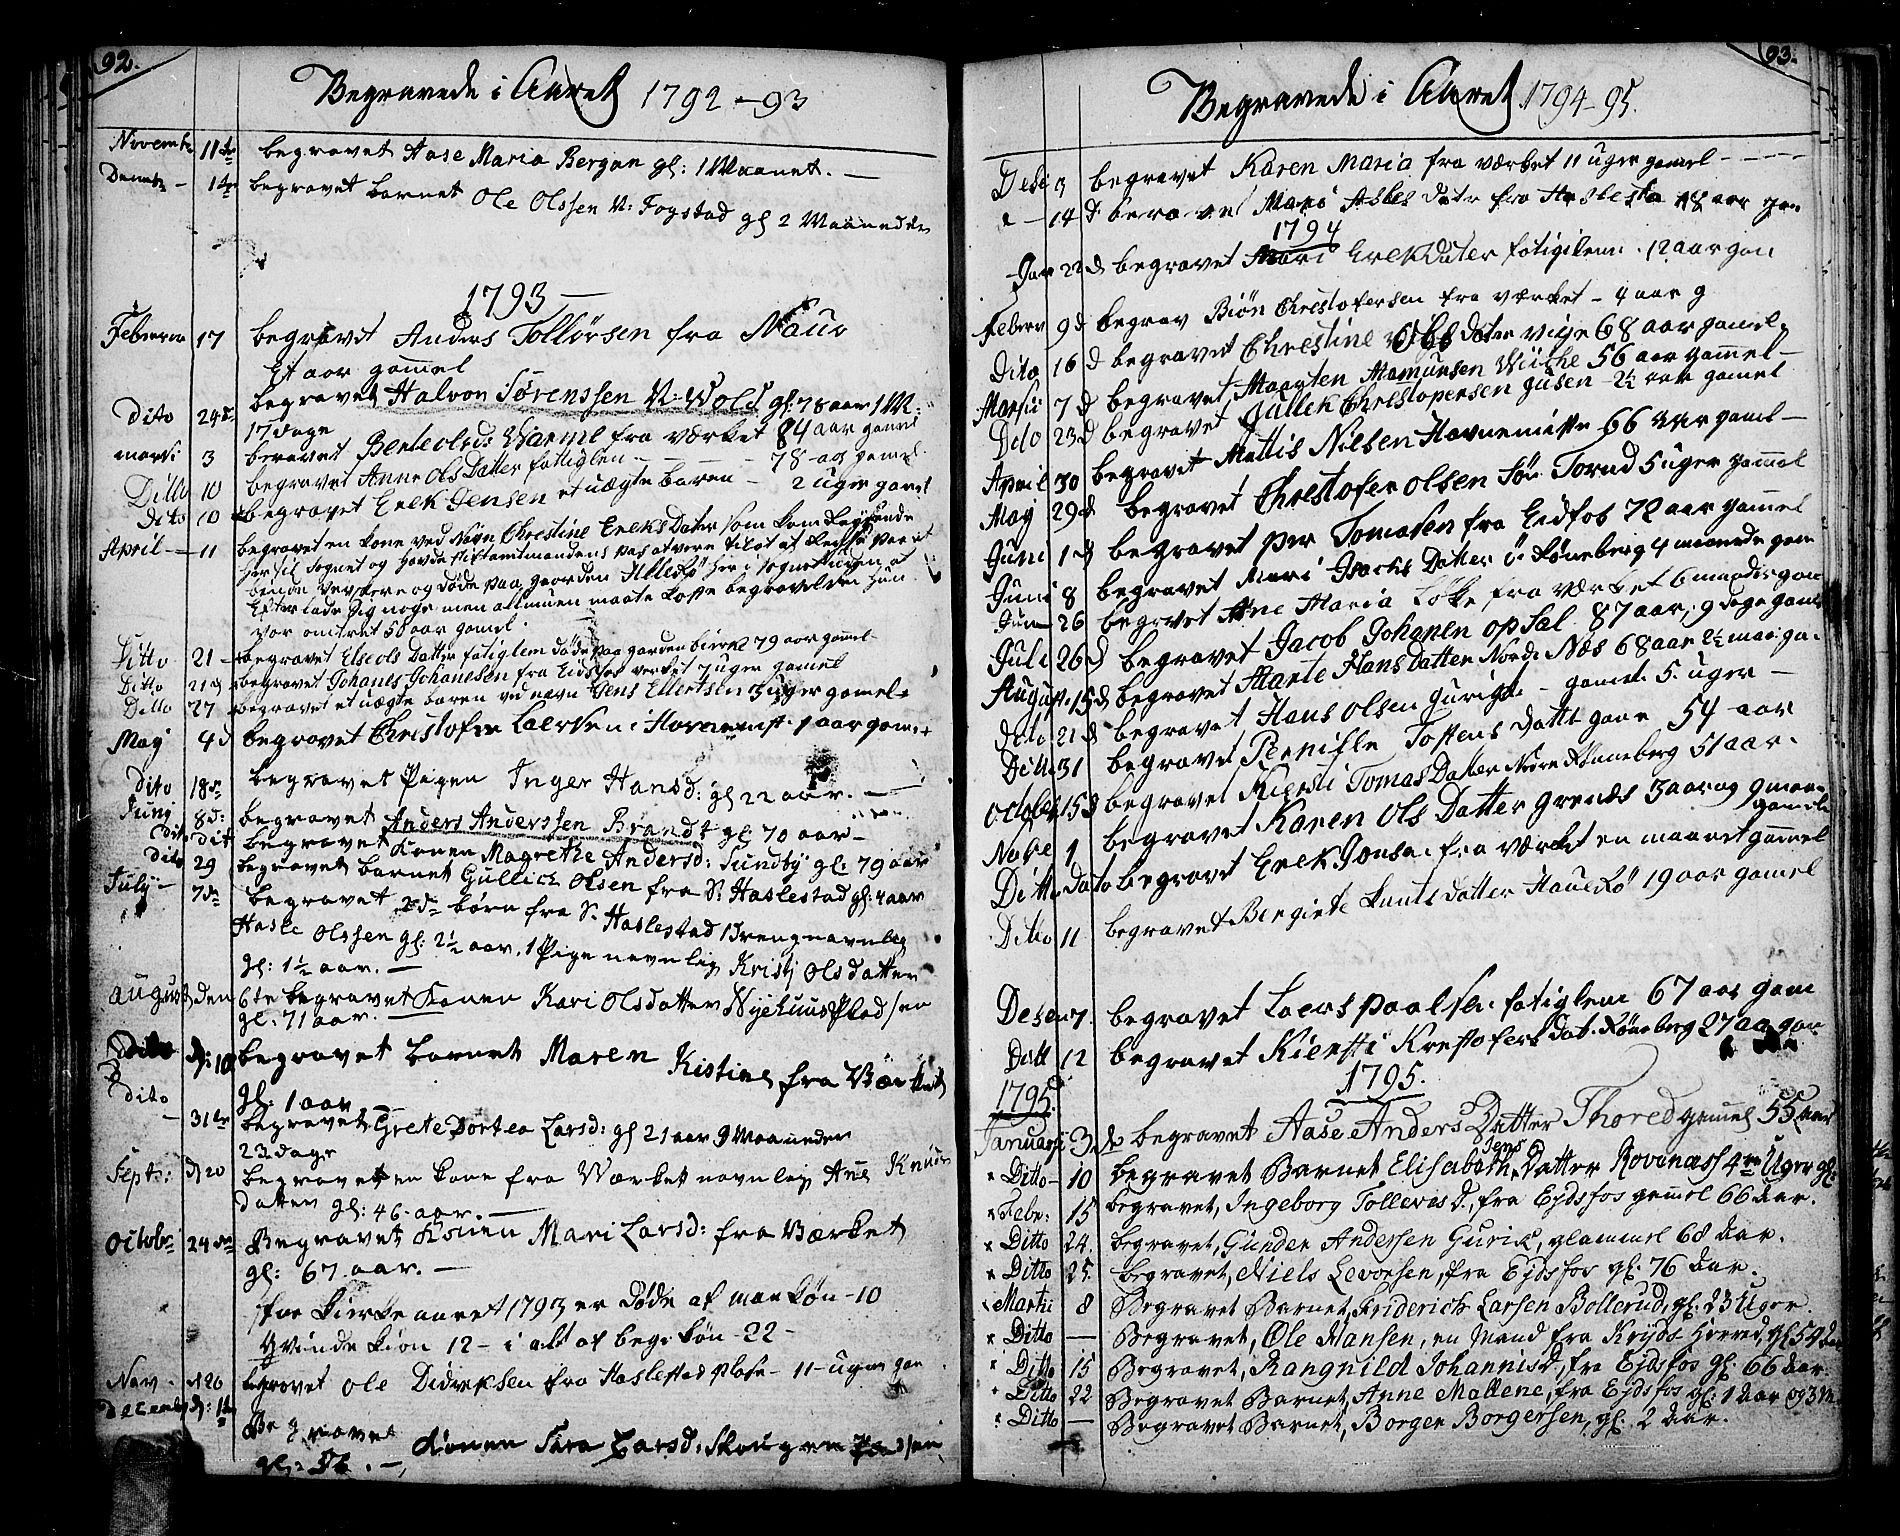 92.
Begravede i Aaret 1792-93
Novembr 11te begravet Aase Maria Bergan gl: 1 Maanet. —
Decembr — 1te begravet barnet Ole Olssen N: Fogstad gl 2 Maaneder
1793 —
Februar 17 begravet Anders Tollørsen fra
Et aar gammel
Dito 24de begravet Halvon Sørenssen N: Wold gl: 78 aar 1 M:
17 dage
marti 3 begravet Berte olsds fra værket 84 aar gamel
Ditto 10 begravet Anne ols Datter fatiglem — 78 aar gamel
dito 10 begravet Erek Jensen et uægte baren — 2 uger gamel
April — 11 begravet en kone ved Navn Chrestine Ereks Dater som kom
her til Sognet og havde stiftamtmandens pas at være
og døde paa gaarden her i sognet uden at
Efterlade sig noget men almuen maate koste begravelsen hun
var omtret 50 aar gamel.
Ditto 21 begravet Elseols Datter fatiglem døde paa garden 79 aar gamel
Ditto 21 d begravet Johanes Johanesen fra Eidsfos verket 7 uger gamel
Ditto 27 begravet et uægte baren ved navn Jens Ellertsen 3 uger gamel
May 4d begravet Christofer Laersen i Havnemist. 1 aar gam.
dito 18de begravet Pigen Inger Hansd: gl 22 aar. —
Junj 8d: begravet Anders Anderssen Brandt gl: 70 aar —
dito dit begravet Konen Magrethe Andersd: Sundby gl: 79 aar
dito 29 begravet barnet Gullich Olsen fra S: Haslestad gl: 4 aar
July — 7de begravet 2de børn fra S: Haslestad 1 Dreng navnlig
Hasle Olssen gl: 2½ aar, 1 Pige navnlig Kristj Olsdatter
gl: 1½ aar. —
august den 6te begravet Konen Kari Olsdatter Nyehuus Pladsen
gl: 71 aar. —
Dito d: 10 begravet barnet Maren Kistine fra Værket
gl: 1 aar
dito — 31te begravet Grete Dortea Larsd: gl 21 aar 9 Maaneder
23 dage
Septr: d 20 begravet en kone fra Værket navnlig Ane Knuds
datter gl: 46 aar. —
Octobr: 24de Begravet Konen Mari Larsd: fra Værket
gl: 67 aar. —
for kierke aaret 1793 er døde af mankøn - 10
Qvindekiøn 12 - i alt af bege køn - 22 -
Nov. d 20 begravet Ole Didreksen fra Haslestad plads - 11 - uger gam
Decemb d: 1te Begravet Konen Sara Larsd: Skougen Pladsen
gl: 56. —
93.
Begravede i Aaret 1794-95.
Dese 3 begravet Karen Maria fra værket 11 uger gamel
" — 14 d begravet Mari Asles Dater fra Haslestad 18 aar gam
1794
Jan 22 d begravet Mari Erek Dater fatiglem 12 aar gam
Febrer 9 d begrav Biøn Chrestofersen fra værket — 4 aar g
Dito 16 d begravet Chrestine Ols dater 68 aar gamel
Marsii 7 d begravet Maarten Amundsen 56 aar gammel —
Dito 23 d begravet Gullek Chrestopersen 2½ aar gamel
April 30 begravet Mattis Nielsen Havnemiste 66 aar gamel —
May 29 d begravet Chrestofer olsen Sør Torud 5 uger gammel
Juni 1 d begravet per Tomasen fra Eidfos 72 aar gammel
Juni 8 begravet Mari Isacks Datter Røneberg 4 maanede gam
Juni 26 begravet Ane Maria fra værket 6 maaneder gam
Juli 26 d begravet Jacob Johanen opsal 87 aar, 9 dage gamel
August 15 d begravet Marte Hans Datter Norde Næs 68 aar 2½ maa ga.
Dito 21 d begravet Hans olsen Gurigh — gamel 5 uger —
Ditto 31 begravet Tostens Datter 54 aar
October 15 d begravet Kiersti Tomas Datter Nore Rønneberg 51 aar.
Nove 1 begravet Karen Ols Datter Grenes 3 aar og 9 maane
gamele
Ditto dato begravet Erek Jønsa fra værket en maanet gammel
Ditto 11 begravet Bergiete knuts datter 19 aar gamel
Desem 7 begravet Laers paalsen fatiglem 67 aar gam
Ditt 12 begravet Kiersti Krestofers Dat. Røneberg 27 aa gam
1795.
1795.
Januarii 3 d begravet Aase Anders Datter Thored gamel 55 aar
Ditto 10 begravet Barnet Elisabeth Jens Datter Rovenæss 4re Uger gl:
Febr: 15 begravet, Ingeborg Tollevesd., fra Eydsfos gamel 66 Aar.
Ditto 24. begravet, Gunder Andersen Gurik, glammel 68 Aar.
Ditto 25. begravet, Niels Levorsen, fra Eydsfos gl. 76 Aar.
Martii 8 Begravet Barnet, Friderich Larsen Bollerud, gl. 23 Uger.
Ditto — Begravet, Ole Hansen, en Mand fra Kryds-Herred, gl 54 Aar
Ditto 15 Begravet, Rangnild Johannisd., fra Eydsfos gl. 66 Aar.
Ditto 22 Begravet Barnet, Anne Mallene, fra Eydsfos gl. 1 Aar og 3 M.
Ditto — Begravet Barnet, Borger Borgersen, gl. 2 Aar.